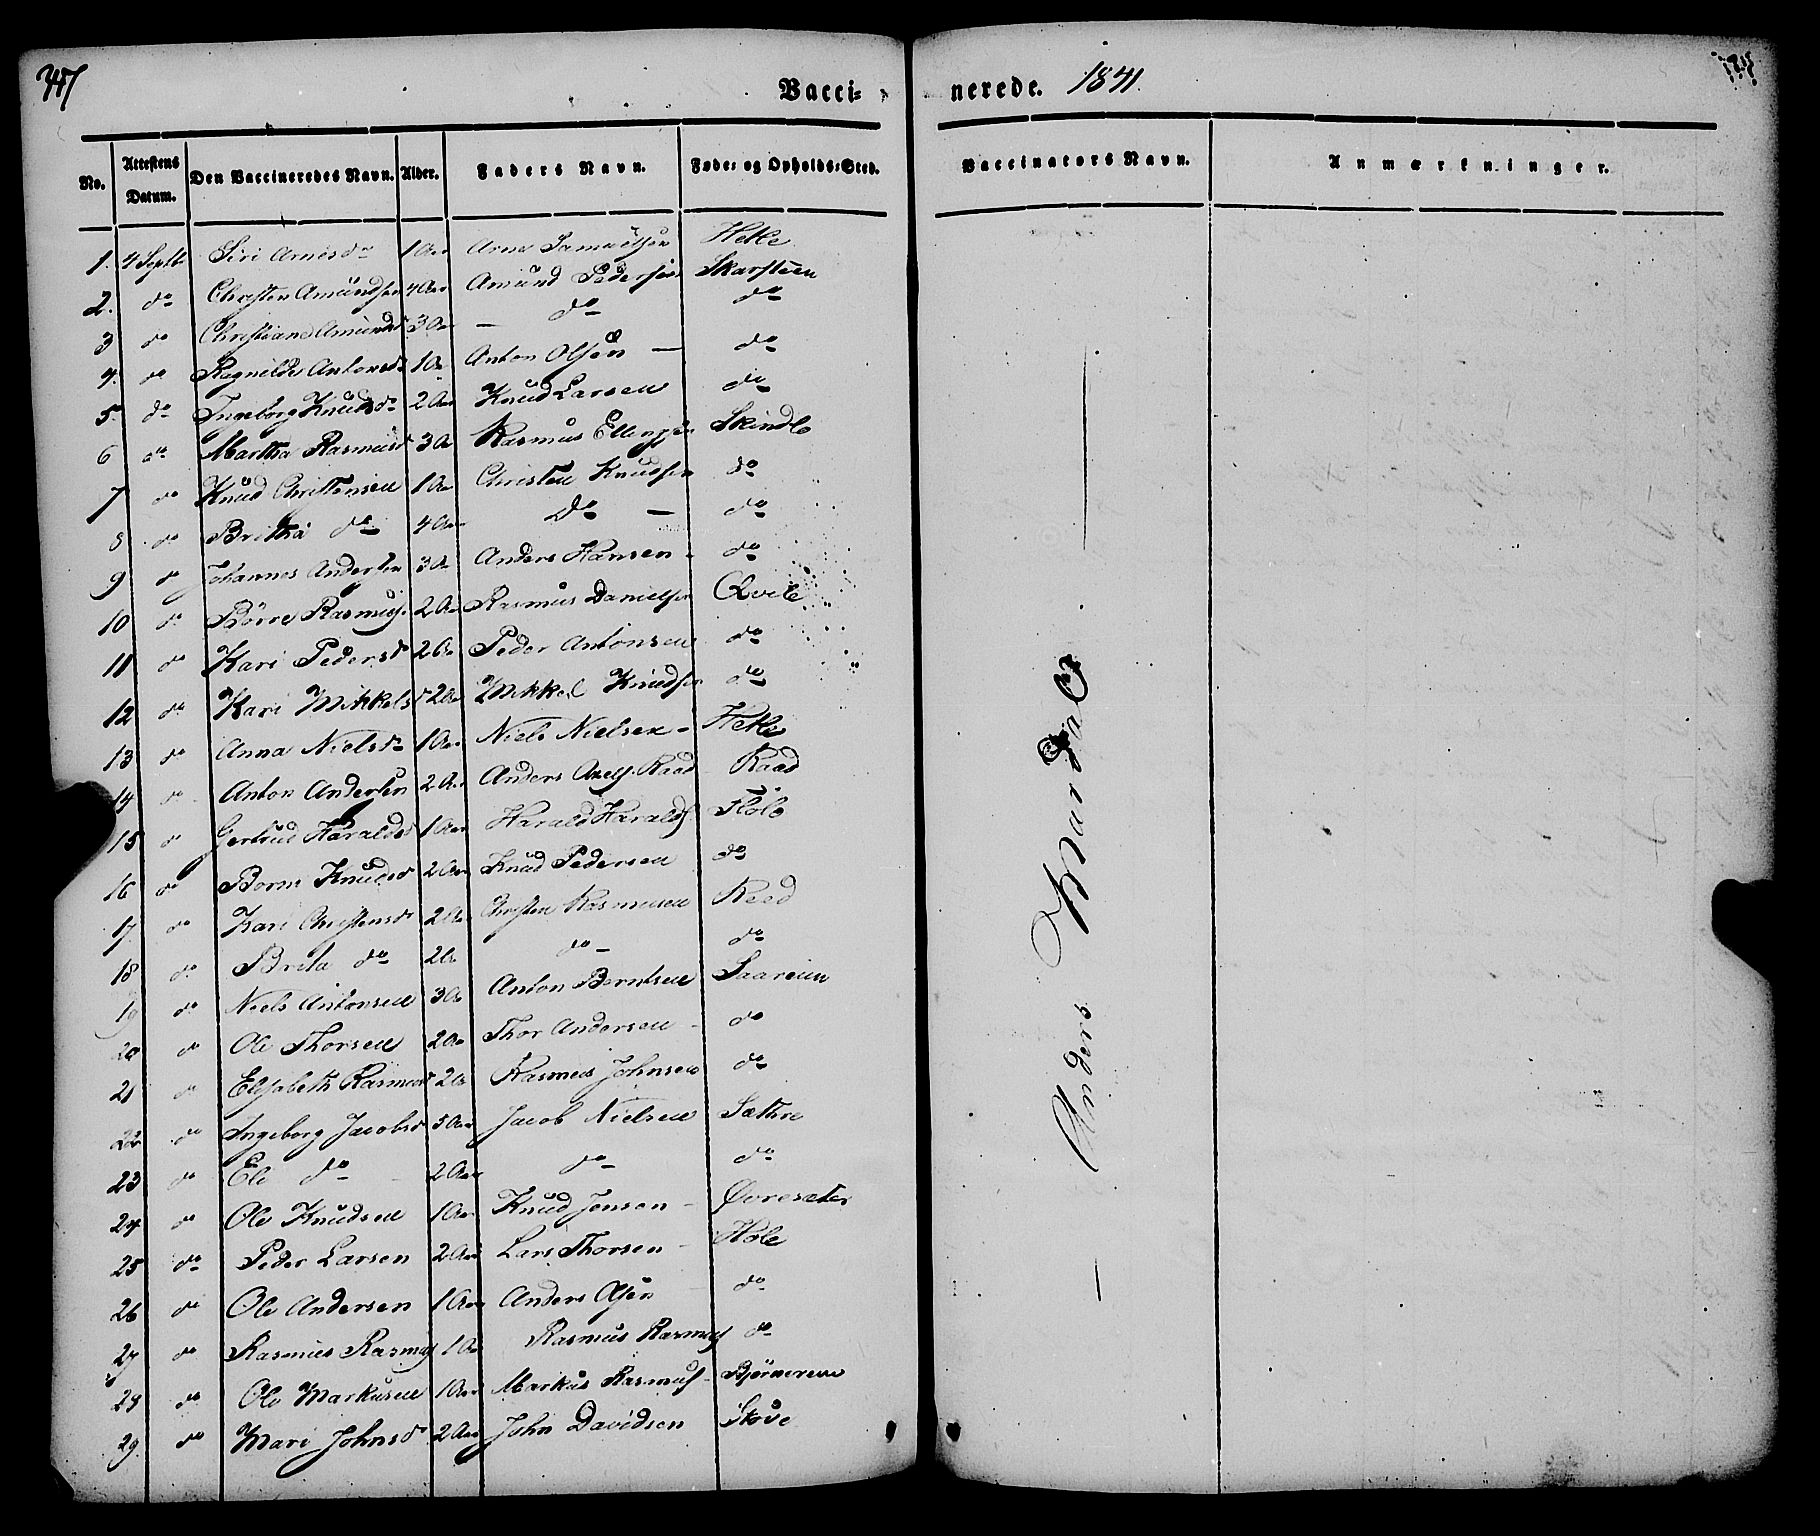 Vaccinerede. 1841.
No. Attestens Datum. Den Vaccineredes Navn. Alder. Faders Navn. Føde- og Opholds-Sted. Vaccinators Navn. Anmærkninger.
1. 4 Septbr Siri Arnesdr 1 Aar Arne Samuelsen Helle
2. do Christen Amündsen 4 Aar Amünd Pedersen Skarsteen
3 do Christiane Amünds 3 Aar — do do
4. do Ragnilde Antonsdr 1 Aar Anton Olsen — do
5. do Ingeborg Knüdsdr 2 Aar Knüd Larsen do
6 do Martha Rasmusdr 3 Aar Rasmus Ellingsen Skindlo
7 do Knüd Christensen 1 Aar Christen Knüdsen do
8 do Britha do 4 Aar Do — do
9 do Johannes Andersen 3 Aar Anders Hansen - do
10 do Börre Rasmus. 2 Aar Rasmus Danielsen Qvile
11 do Kari Pedersdr 2 Aar Peder Antonsen do
12 do Kari Mikkelsdr 2 Aar Mikkel Knüdsen do
13 do Anna Nielsdr 1 Aar Niels Nielsen - Helle
14 do Anton Andersen 2 Aar Anders Axels. Raad Raad
15 do Gertrüd Haraldsdr 1 Aar Harald Haralds. Hole
16 do Knüdsdr 2 Aar Knüd Pedersen do
17. do Kari Christensdr 2 Aar Christen Rasmusen Reed
18 do Brita do 2 Aar do — do
19 do Niels Antonsen 3 Aar Anton Berntsen Saareim
20 do Ole Thorsen 2 Aar Thor Andersen - do
21 do Elisabeth Rasmusdr 2 Aar Rasmus Johnsen do
22 do Ingeborg Jacobsdr 5 Aar Jacob Nielsen Sæthre
23 do Eli do - 2 Aar do do
24 do Ole Knüdsen 1 Aar Knüd Jensen - Øvresæter
25 do Peder Larsen 2 Aar Lars Thorsen - Hole
26 do Ole Andersen 1 Aar Anders Olsen do
27 do Rasmus Rasmus. 1 Aar Rasmus Rasmus. do
28 do Ole Markusen 1 Aar Markus Rasmus. Bjørnereim
29. do Mari Johnsdr 2 Aar John Davidsen Stove
— Anders Mardal —